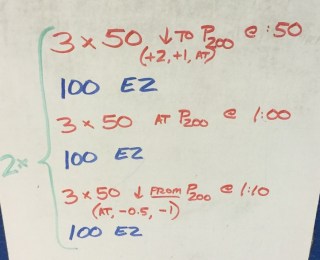 3 x 50 ↓ TO P200 @ :50
(+2, +1, AT)
100 EZ
3 x 50 AT P200 @ 1:00
100 EZ
2x
3 x 50 ↓ FROM P200 @ 1:10
(AT, -0.5, -1)
100 EZ